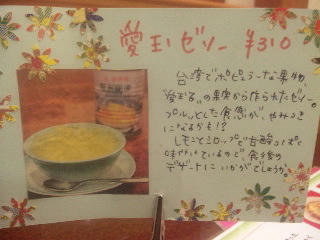 愛玉ゼリー ¥310
台湾でポピュラーな果物
愛玉子の果実から作られたゼリー。
プルッとした食感が、やみつき
になるかも!?
レモンとシロップで甘酸っぱく
味付けているので食後の
デザートにいかがでしょうか。